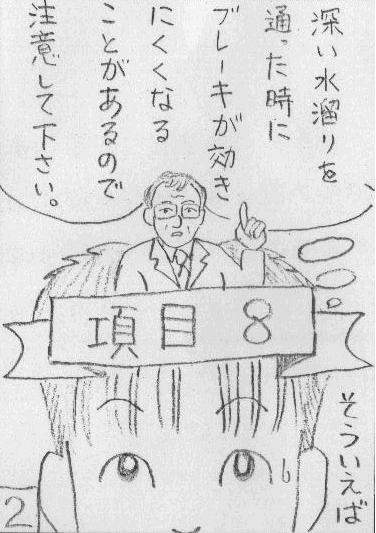 深い水溜りを
通った時に
ブレーキが効き
にくくなる
ことがあるので
注意して下さい。
項目8
そういえば
2